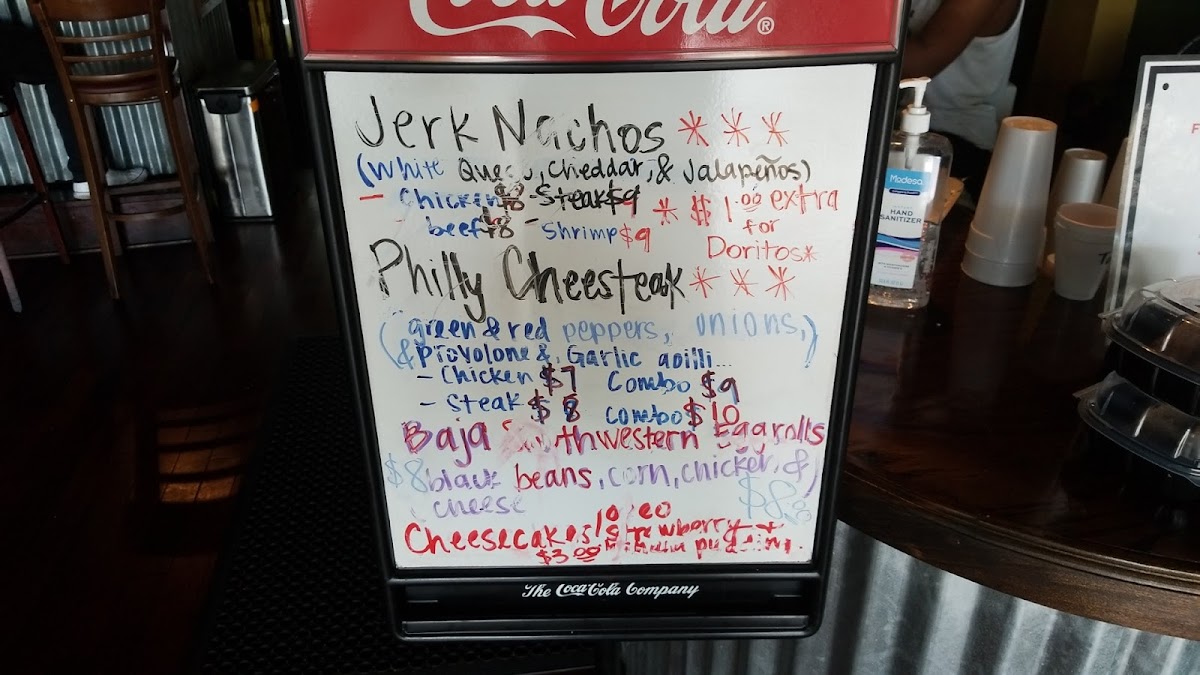 Coca-Cola®
Jerk Nachos ***
(White Queso, Cheddar, & Jalapeños)
- Chicken $8 - Steak $9
beef $8 - Shrimp $9
* $1.00 extra
for
Doritos*
Philly Cheesteak ***
(green & red peppers, onions,)
& provolone & Garlic aoilli...
- Chicken $7 Combo $9
- Steak $8 Combo $10
Baja Southwestern Eggrolls
$8 black beans, corn, chicken, &)
cheese $8.00
Cheesecakes Strawberry +
$3.00
The Coca-Cola Company
Modesa
HAND
SANITIZER